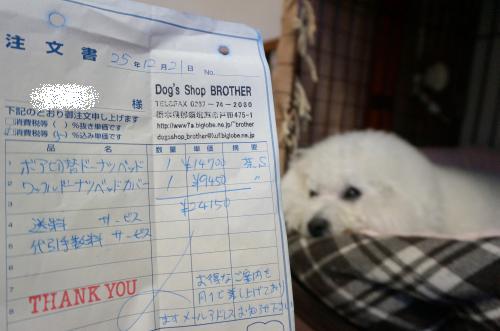 注文書 25年12月21日 No.
Dog's Shop BROTHER
様
TEL&FAX 0297-74-2080
下記のとおり御注文申し上げます
http://www7a.biglobe.ne.jp/~brother
消費税等( )%抜き単価です
dogsshop_brother@kuf.biglobe.ne.jp
消費税等( )%込み単価です
品名 数量 単価 摘要
1 ボアピロ替ドーナツベッド 1 ¥14700 茶、S
2 ワッフルドーナツベッドカバー 1 ¥9450 〃
3 ¥24150
4 送料 サービス
5 代引手数料 サービス
6
7
お得なご案内を
THANK YOU
月1で差し上げており
8
ますメールアドレスお知らせ下さい